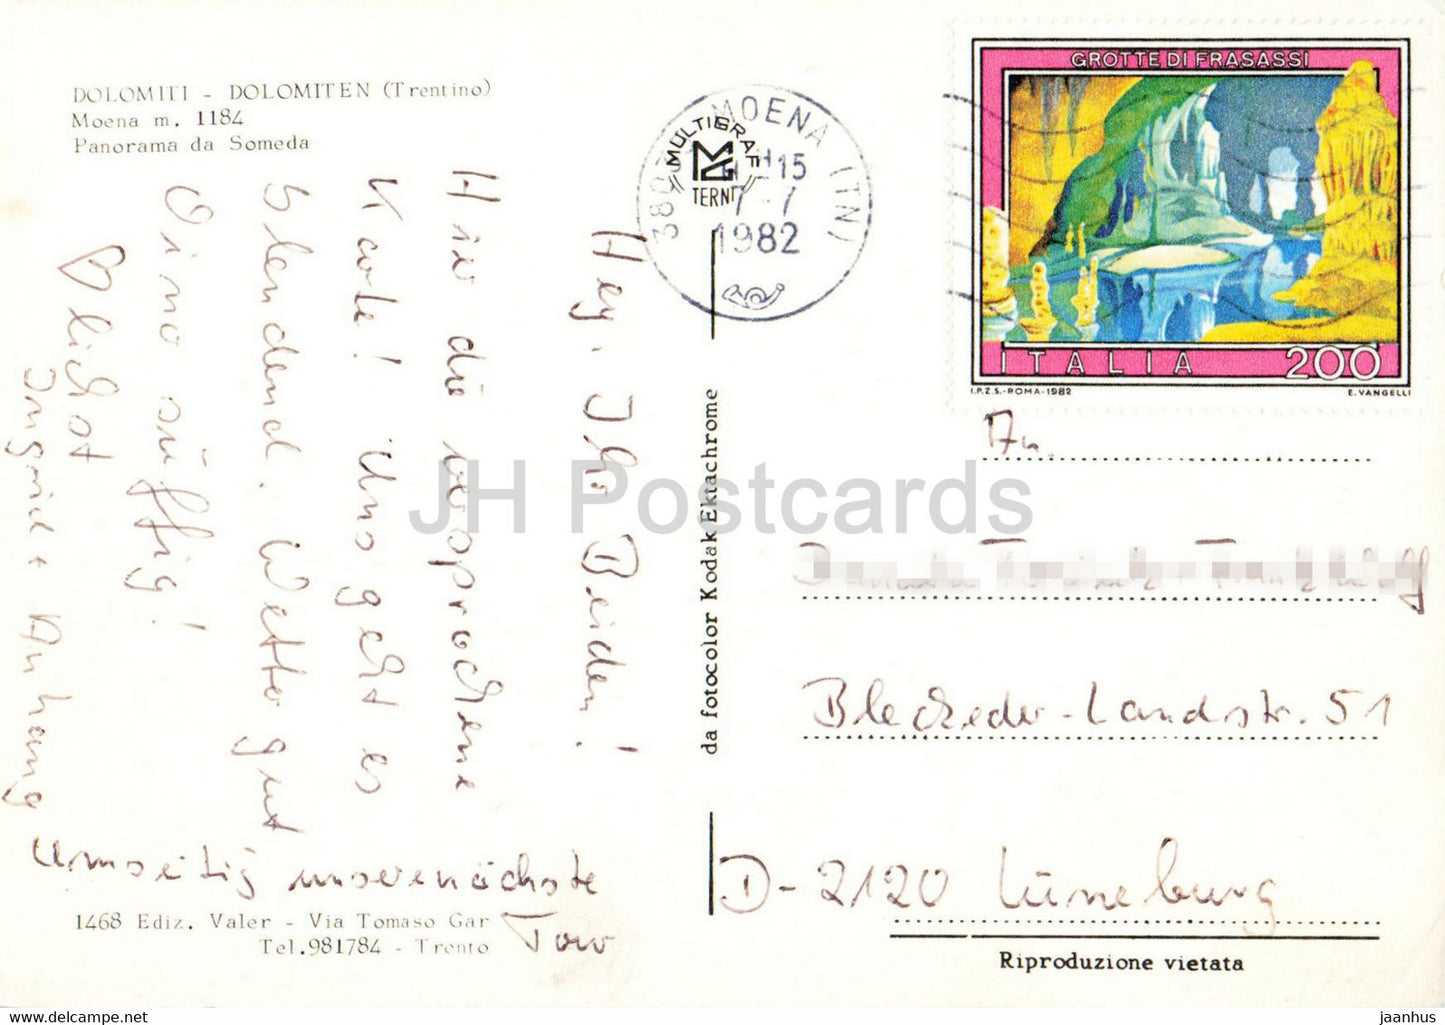 DOLOMITI - DOLOMITEN (Trentino)
Moena m. 1184
Panorama da Someda
Hey, Ihr Beiden!
Hier die versprochene
Karte! Uns geht es
blendend. Wetter gut
Vino süffig!
Ingrid + Anhang
Umseitig unsere nächste
Tour
1468 Ediz. Valer - Via Tomaso Gar
Tel.981784 - Trento
MULTIGRAF
TERNI
da fotocolor Kodak Ektachrome
MOENA (TN)
15
1982
GROTTE DI FRASASSI
ITALIA 200
I.P.Z.S.-ROMA-1982 E. VANGELLI
An.
Bleckeder-Landstr. 51
D-2120 Lüneburg
Riproduzione vietata
JH Postcards
jaanhus